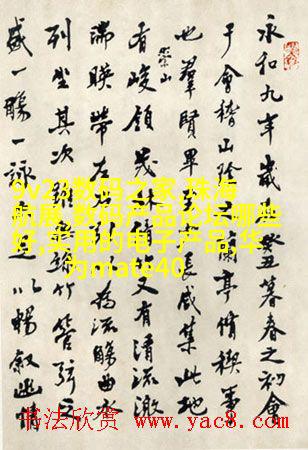 永和九年歲癸丑暮春之初會
于會稽山陰之蘭亭脩禊事
也羣賢畢至少長咸集此地
有崇山峻領茂林脩竹又有清流激
湍暎帶左右為流觴曲水
列坐其次竹管弦之
盛一觴一詠足以暢敘幽情
数码之家,珠海
航展,数码产品论坛哪些
好,实用的电子产品,华
为mate40
书法欣赏 www.yac8.com